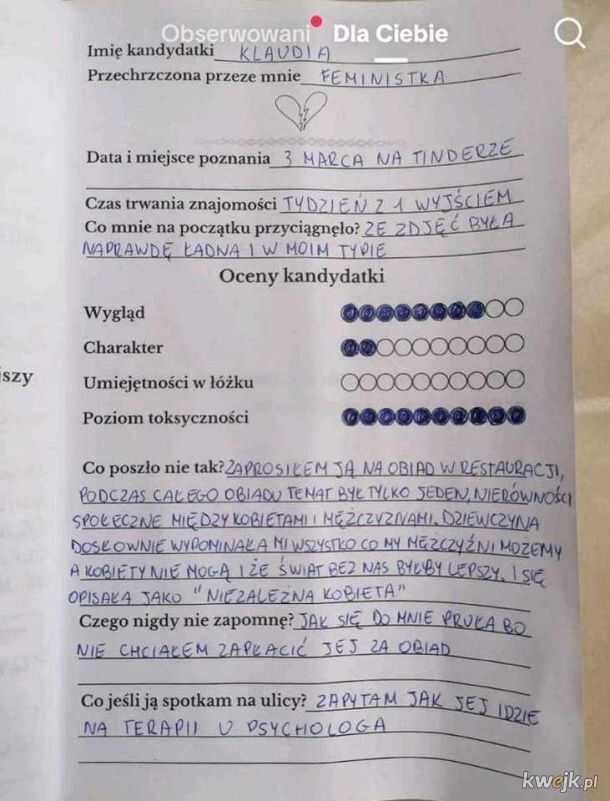 Obserwowani Dla Ciebie
Imię kandydatki KLAUDIA
Przechrzczona przeze mnie FEMINISTKA
Data i miejsce poznania 3 MARCA NA TINDERZE
Czas trwania znajomości TYDZIEŃ Z 1 WYJŚCIEM
Co mnie na początku przyciągnęło? ZE ZDJĘĆ BYŁA
NAPRAWDĘ ŁADNA I W MOIM TYPIE
Oceny kandydatki
Wygląd
Charakter
jszy
Umiejętności w łóżku
Poziom toksyczności
Co poszło nie tak? ZAPROSIŁEM JĄ NA OBIAD W RESTAURACJI,
PODCZAS CAŁEGO OBIADU TEMAT BYŁ TYLKO JEDEN, NIERÓWNOŚCI
SPOŁECZNE MIĘDZY KOBIETAMI I MĘŻCZYZNAMI. DZIEWCZYNA
DOSŁOWNIE WYPOMINAŁA MI WSZYSTKO CO MY MĘŻCZYŹNI MOŻEMY
A KOBIETY NIE MOGĄ I ŻE ŚWIAT BEZ NAS BYŁBY LEPSZY. I SIĘ
OPISAŁA JAKO "NIEZALEŻNA KOBIETA"
Czego nigdy nie zapomnę? JAK SIĘ DO MNIE PRUŁA BO
NIE CHCIAŁEM ZAPŁACIĆ JEJ ZA OBIAD
Co jeśli ją spotkam na ulicy? ZAPYTAM JAK JEJ IDZIE
NA TERAPII U PSYCHOLOGA
kwejk.pl